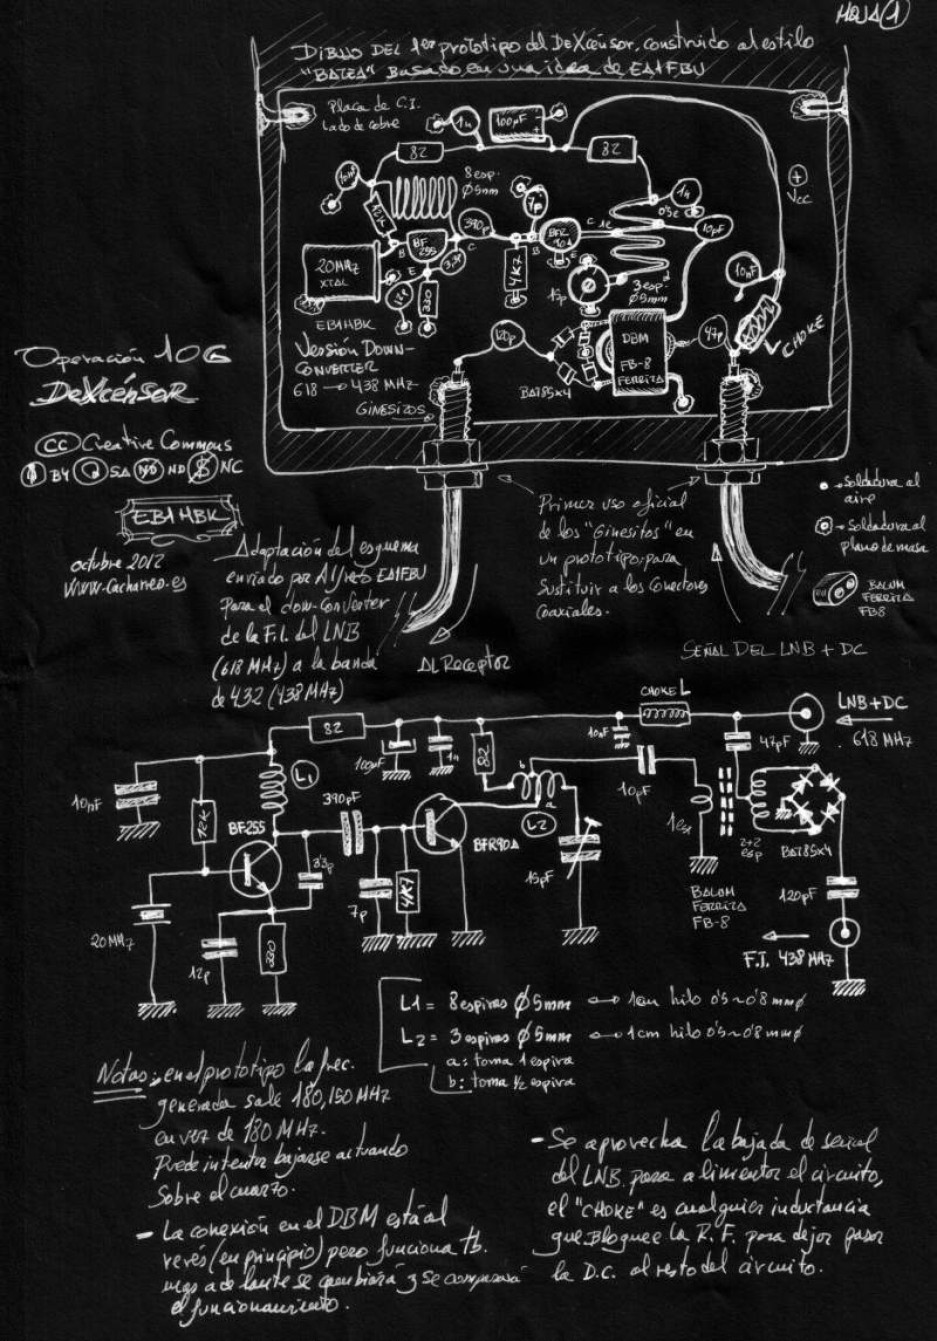 HOJA 1
Dibujo del 1er prototipo del DeXcensor, construido al estilo
"BATEA" Basado en una idea de EA1FBU
Placa de C.I.
lado de cobre
1n
100µF
+
82
82
10nF
8 esp.
Ø5mm
12K
390p
7p
BF
255
B
C
E
3,3p
20MHz
XTAL
12p
220
4K7
B
BFR
90A
C
E
1e
1n
0'5e
10pF
+
Vcc
15p
3 esp.
Ø5mm
10nF
CHOKE
L
EB1HBK
Versión DOWN-
CONVERTER
618 → 438 MHz
GINESITOS
120p
BAT85x4
DBM
FB-8
FERRITA
47p
Operación 10G
DeXcensor
CC Creative Commons
BY SA ND NC
EB1HBK
octubre 2012
www.cachareo.es
Adaptación del esquema
enviado por Alfredo EA1FBU
para el dow-converter
de la F.I. del LNB
(618 MHz) a la banda
de 432 (438 MHz)
Primer uso oficial
de los "Ginesitos" en
un prototipo para
sustituir a los conectores
coaxiales.
→ soldadura al
aire
→ soldadura al
plano de masa
BALUM
FERRITA
FB8
AL Receptor
SEÑAL DEL LNB + DC
CHOKE L
LNB+DC
618 MHz
82
100µF
1n
82
10nF
47pF
10nF
12K
L1
390pF
b
a
L2
10pF
1esp
2+2
esp
BAT85x4
BF255
BFR90A
3'3p
7p
4K7
15pF
BALUM
FERRITA
FB-8
120pF
20MHz
12p
220
F.I. 438 MHz
L1 = 8 espiras Ø5mm ↔ 1cm hilo 0'5~0'8 mmØ
L2 = 3 espiras Ø5mm ↔ 1cm hilo 0'5~0'8 mmØ
a: toma 1 espira
b: toma ½ espira
Notas: en el prototipo la frec.
generada sale 180,150 MHz
en vez de 180 MHz.
Puede intentar bajarse actuando
sobre el cuarzo.
- La conexión en el DBM está al
revés (en principio) pero funciona tb.
mas adelante se cambiará y se comparará
el funcionamiento.
- Se aprovecha la bajada de señal
del LNB para alimentar el circuito,
el "CHOKE" es cualquier inductancia
que Bloquee la R.F. para dejar pasar
la D.C. al resto del circuito.